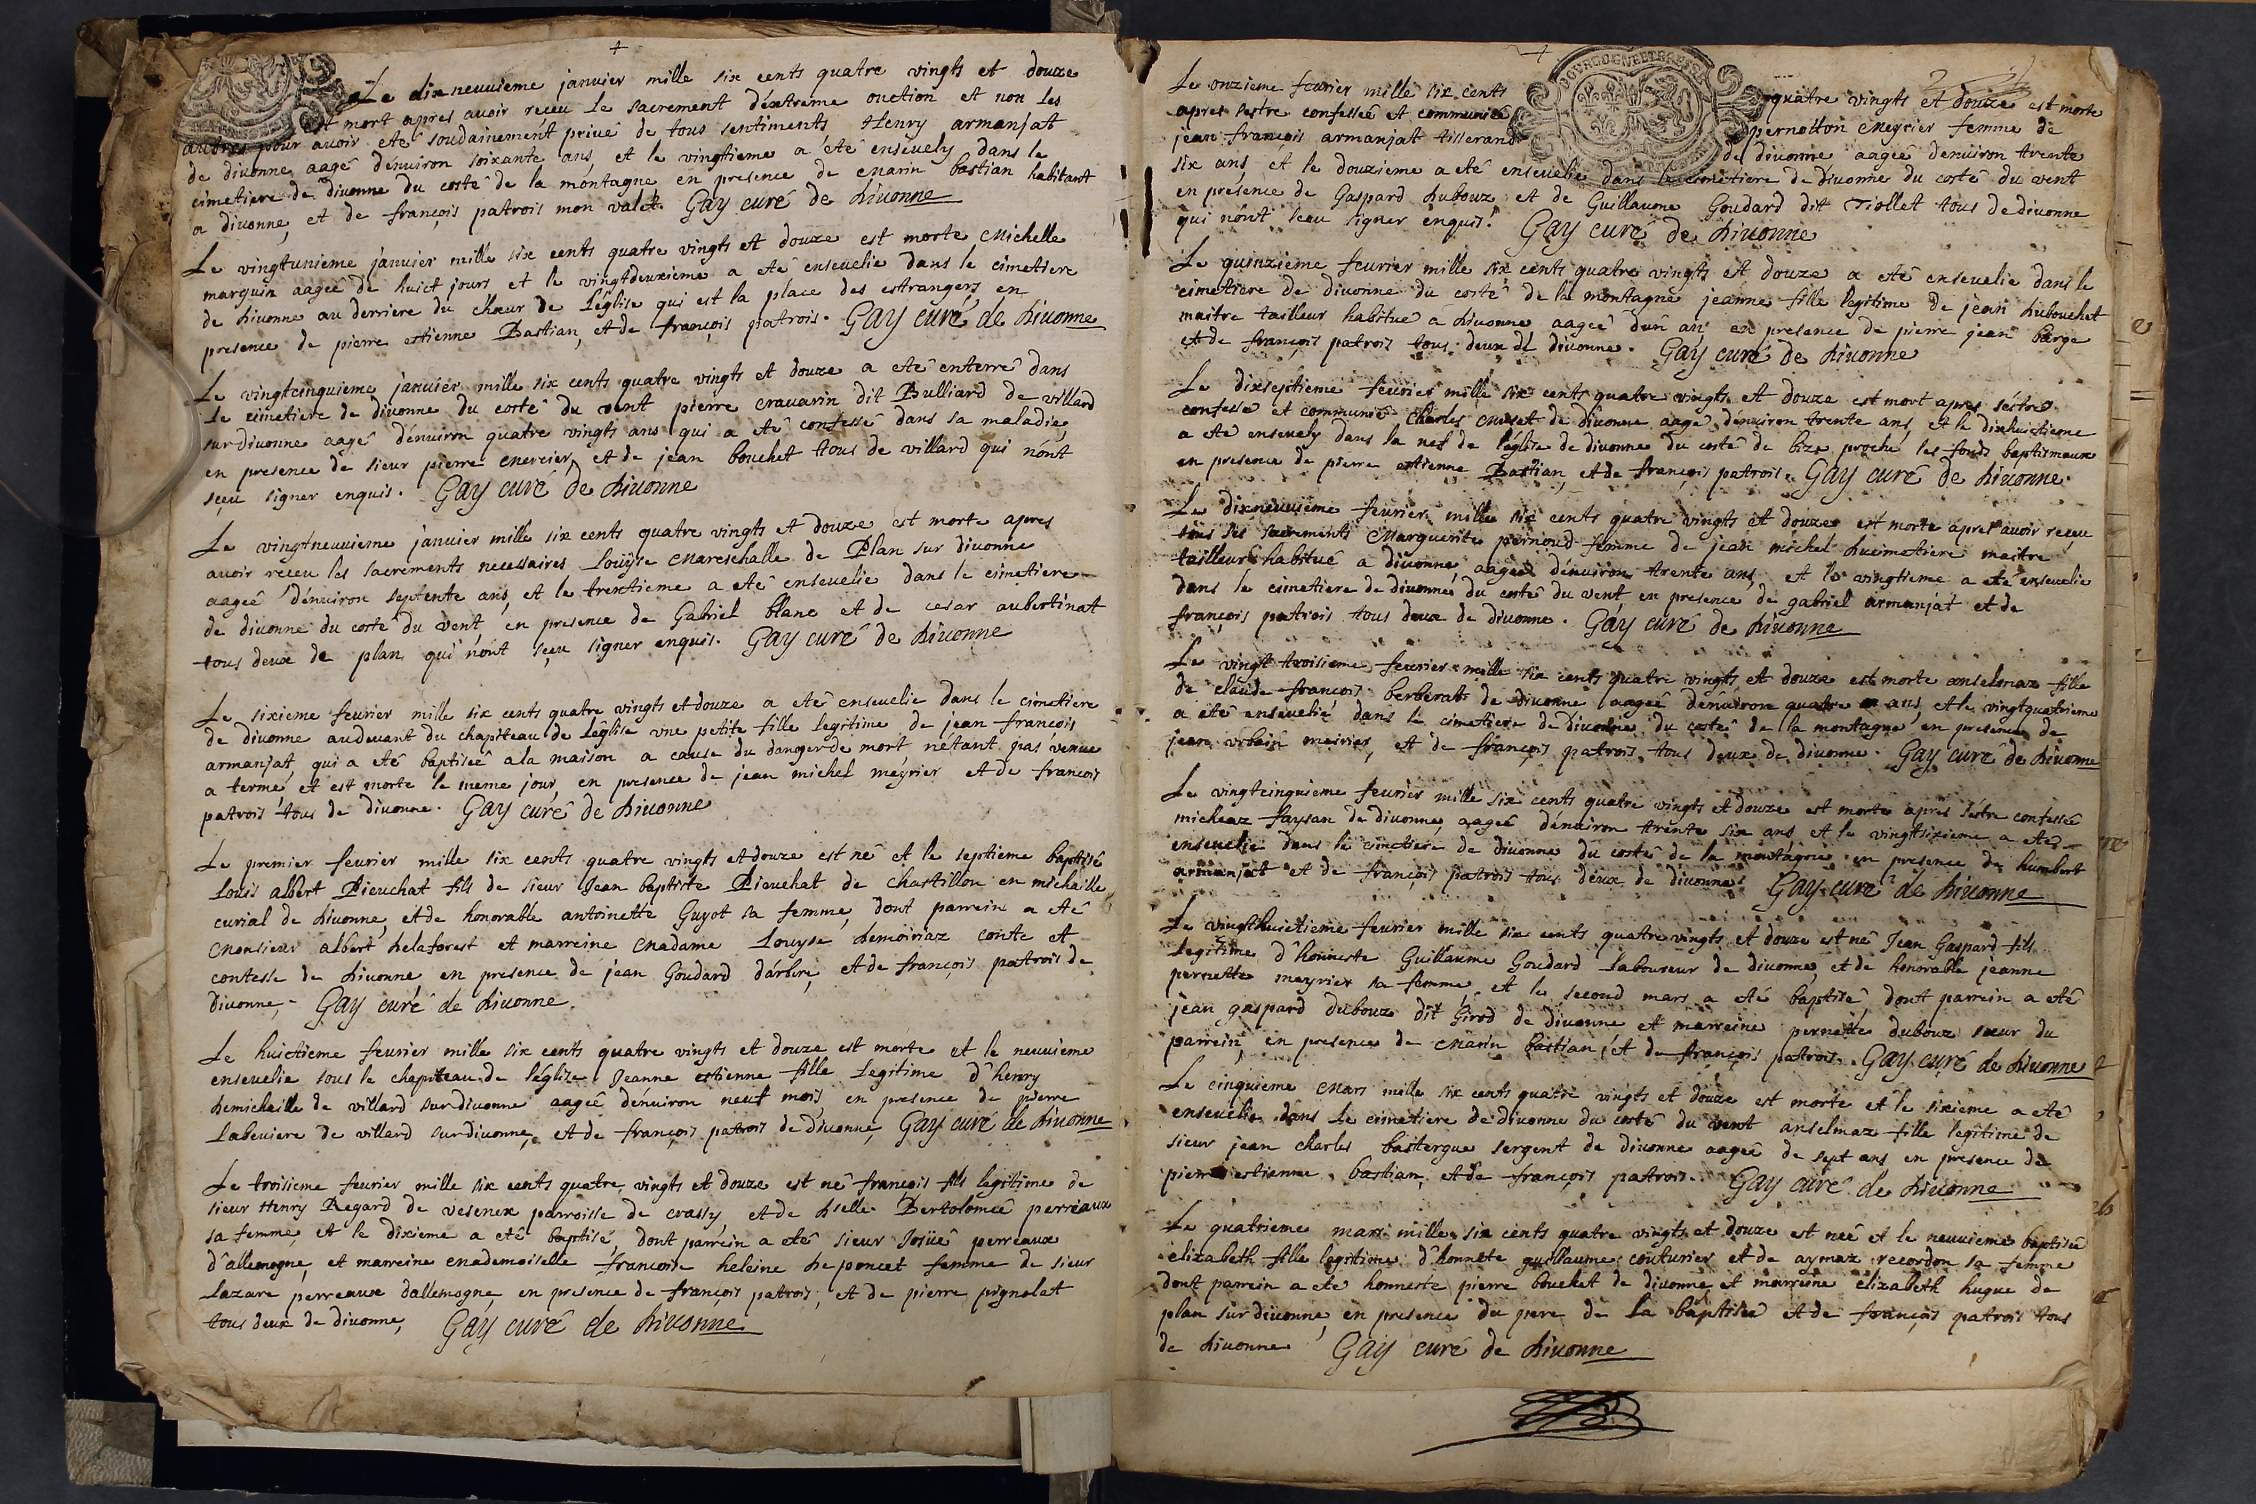 Le dixneuuieme januier mille six cents quatre vingts et douze
est mort apres auoir receu le sacrement d'extreme onction et non les
autres pour auoir eté soudainement priué de tous sentiments Henry armanjat
de diuonne aagé d'enuiron soixante ans, et le vingtieme a eté enseuely dans le
cimetiere de diuonne du costé de la montagne en presence de Marin bastian habitant
a diuonne, et de françois patrois mon valet. Gay curé de diuonne
Le vingtunieme januier mille six cents quatre vingts et douze est morte Michelle
marquin aageé de huict jours et le vingtdeuxieme a eté enseuelie dans le cimetiere
de diuonne au derriere du chœur de l'église qui est la place des estrangers, en
presence de pierre estienne Bastian, et de françois patrois. Gay curé de diuonne
Le vingtcinquieme januier mille six cents quatre vingts et douze a eté enterré dans
le cimetiere de diuonne du costé du vent pierre crauarin dit Bulliard de villard
sur diuonne aagé d'enuiron quatre vingts ans qui a eté confessé dans sa maladie,
en presence de sieur pierre Mercier, et de jean bouchet tous de villard qui n'ont
sçeu signer enquis. Gay curé de diuonne
Le vingtneuuieme januier mille six cents quatre vingts et douze est morte apres
auoir receu les sacrements necessaires Louÿse Mareschalle de Plan sur diuonne
aageé d'enuiron septente ans, et le trentieme a eté enseuelie dans le cimetiere
de diuonne du costé du vent, en presence de Gabriel blanc et de cesar aubertinat
tous deux de plan qui n'ont sçeu signer enquis. Gay curé de diuonne
Le sixieme feurier mille six cents quatre vingts et douze a eté enseuelie dans le cimetiere
de diuonne audeuant du chapiteau de l'église vne petite fille legitime de jean françois
armanjat, qui a eté baptiseé a la maison a cause du danger de mort n'etant pas venue
a terme, et est morte le meme jour, en presence de jean michel meyrier et de françois
patrois tous de diuonne. Gay curé de diuonne
Le premier feurier mille six cents quatre vingts et douze est né et le septieme baptisé
Louis albert Pieuchat fils de sieur Jean baptiste Pieuchat de chastillon en michaille
curial de diuonne, et de honorable antoinette Guyot sa femme, dont parrein a eté
Monsieur albert delaforest et marreine Madame Louyse demoiriaz conte et
contesse de diuonne en presence de jean Goudard d'arbere, et de françois patrois de
diuonne,- Gay curé de diuonne.
Le huictieme feurier mille six cents quatre vingts et douze est morte et le neuuieme
enseuelie sous le chapiteau de l'église Jeanne estienne fille legitime d'henry
demichaille de villard sur diuonne aageé d'enuiron neuf mois, en presence de pierre
Labeuiere de villard sur diuonne, et de françois patrois de diuonne, Gay curé de diuonne
Le troisieme feurier mille six cents quatre vingts et douze est né françois fils legitime de
sieur Henry Regard de vesenex parroisse de crassy, et de dselle. Bertolomeé perreaux
sa femme, et le dixieme a eté baptisé, dont parrein a eté sieur Josüé perreaux
d'allemogne, et marreine Mademoiselle françoise heleine de poncet femme de sieur
Lazare perreaux dallemogne, en presence de françois patrois, et de pierre pignolat
tous deux de diuonne, Gay curé de diuonne
Le onzieme feurier mille six cents quatre vingts et douze est morte
apres sestre confesseé et communieé pernotton Meyrier femme de
jean françois armanjat tisserand de diuonne aageé denuiron trente
six ans, et le douzieme a eté enseuelie dans le cimetiere de diuonne du costé du vent
en presence de Gaspard dubouz et de Guillaume Goudard dit Tiollet tous de diuonne
qui n'ont sceu signer enquis. Gay curé de diuonne
Le quinzieme feurier mille six cents quatre vingts et douze a eté enseuelie dans le
cimetiere de diuonne du costé de la montagne jeanne fille legitime de jean dubouchet
maitre tailleur habitué a diuonne, aageé d'un an en presence de pierre jean barge
et de françois patrois tous deux de diuonne. Gay curé de diuonne
Le dixseptieme feurier mille six cents quatre vingts et douze est mort apres séstre
confesse et communié Charles Muset de diuonne aagé d'enuiron trente ans, et le dixhuictieme
a eté enseuely dans la nef de l'église de diuonne du costé de bize proche les fonds baptismaux
en presence de pierre estienne Bastian, et de françois patrois. Gay curé de diuonne.
Le dixneuuieme feurier mille six cents quatre vingts et douze est morte apres auoir reçeu
tous ses sacrements Marguerite pernoud femme de jean michel ducimetiere maitre
tailleur habitué a diuonne, aageé d'enuiron trente ans, et le vingtieme a eté enseuelie
dans le cimetiere de diuonne, du costé du vent, en presence de gabriel armanjat et de
françois patrois tous deux de diuonne. Gay curé de diuonne
Le vingt troisieme feurier mille six cents quatre vingts et douze est morte anselmaz fille
de claude françois berberat de diuonne aageé d'enuiron quatre ans, et le vingtquatrieme
a eté enseuelie dans le cimetiere de diuonne du costé de la montagne en presence de
jean vrbain meirier, et de françois patrois tous deux de diuonne. Gay curé de diuonne
Le vingtcinquieme feurier mille six cents quatre vingts et douze est morte apres séstre confesseé
micheaz faysan de diuonne, aageé d'enuiron trente six ans et le vingtsixieme a eté
enseuelie dans le cimetiere de diuonne du costé de la montagne en presence de humbert
armanjat et de françois patrois tous deux de diuonne. Gay curé de diuonne
Le vingthuictieme feurier mille six cents quatre vingts et douze est né Jean Gaspard fils
legitime d'honneste Guillaume Goudard laboureur de diuonne, et de honorable jeanne
pernette meyrier sa femme, et le second mars a eté baptisé, dont parrein a eté
jean gaspard dubouz dit Girod de diuonne et marreine pernette dubouz sœur du
parrein, en presence de Marin bastian, et de françois patrois. Gay curé de diuonne
Le cinquieme Mars mille six cents quatre vingts et douze est morte et le sixieme a eté
enseuelie dans le cimetiere de diuonne du costé du vent anselmaz fille legitime de
sieur jean charles bastergue sergent de diuonne aageé de sept ans en presence de
pierre estienne bastian, et de françois patrois. Gay curé de diuonne
Le quatrieme mars mille six cents quatre vingts et douze est neé et le neuuieme baptiseé
elizabeth fille legitime d'honnete guillaume couturier et de aymaz recordon sa femme
dont parrein a eté honneste pierre bouchet de diuonne, et marreine elizabeth hugue de
plan sur diuonne, en presence du pere de la baptiseé et de françois patrois tous
de diuonne Gay curé de diuonne